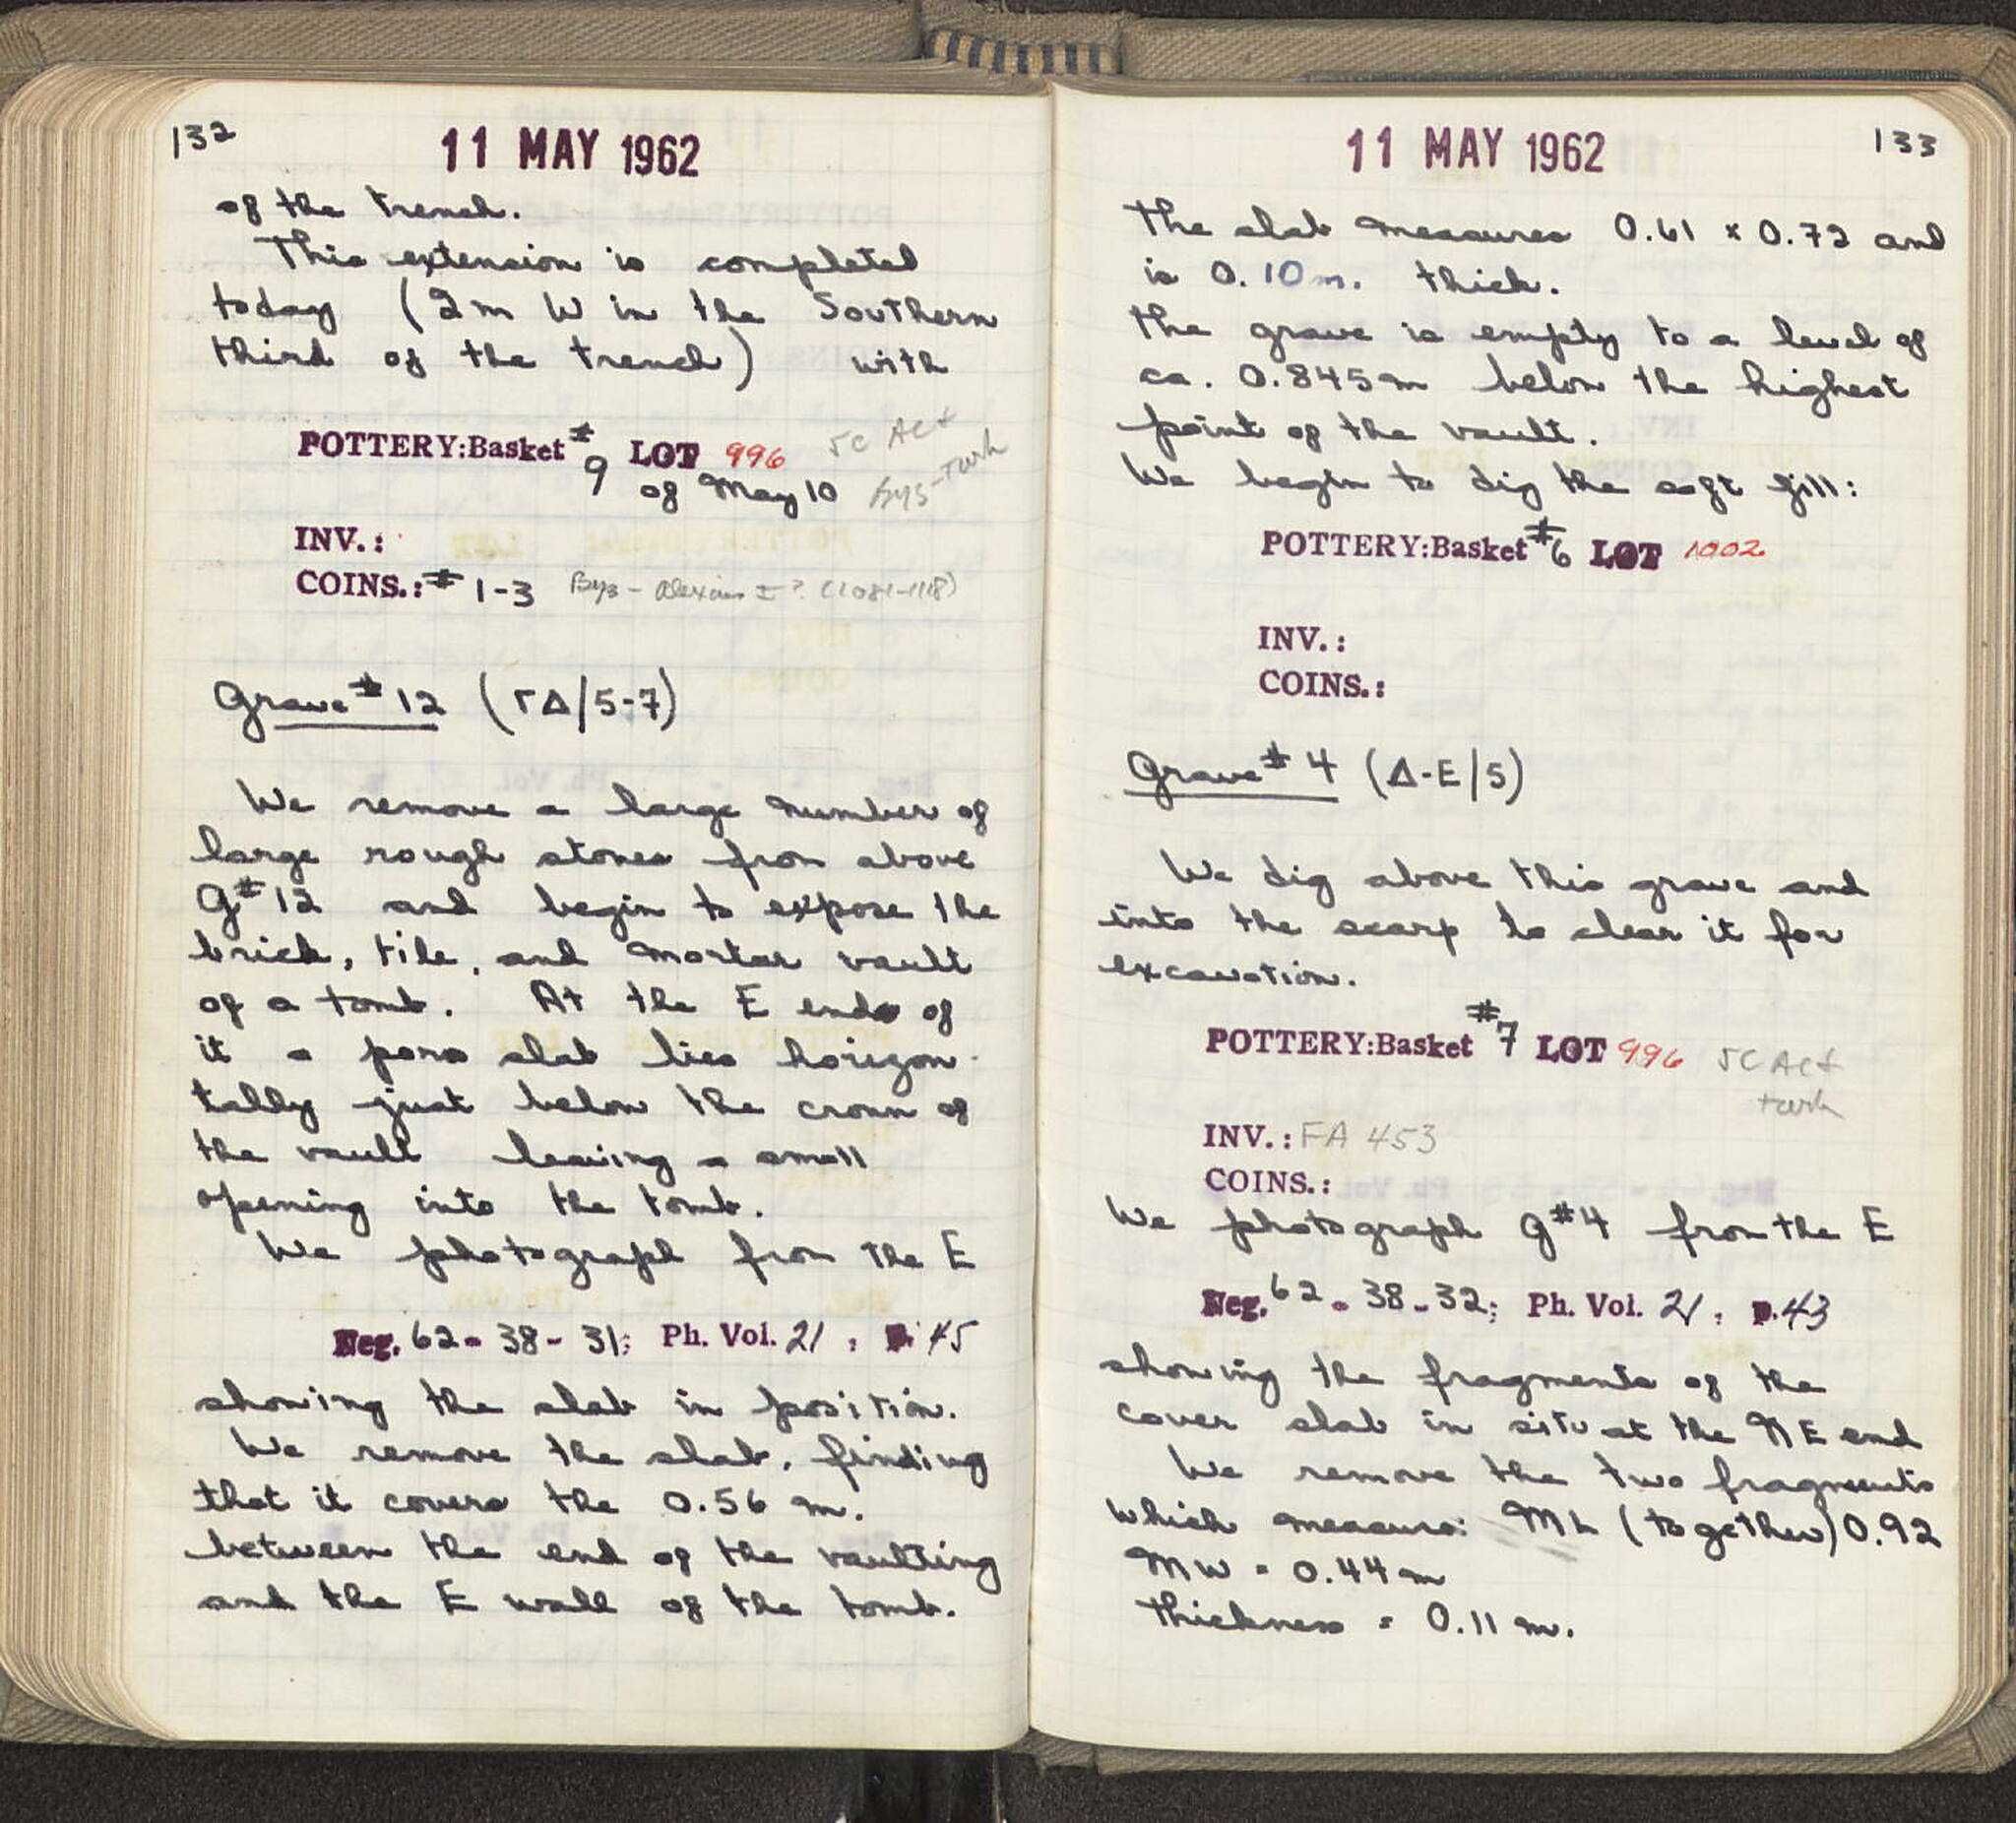 132
11 MAY 1962
of the trench.
This extension is completed
today (2m W in the Southern
third of the trench) with
POTTERY: Basket # 9 LOT 996 5C Act
of May 10 Byz-Turk
INV.:
COINS.: # 1-3 Byz - Alexius I? (1081-1118)
Grave # 12 (ΓΔ/5-7)
We remove a large number of
large rough stones from above
G#12 and begin to expose the
brick, tile, and mortar vault
of a tomb. At the E end of
it a poros slab lies horizon-
tally just below the crown of
the vault leaving a small
opening into the tomb.
We photograph from the E
Neg. 62- 38- 31; Ph. Vol. 21, p. 45
showing the slab in position.
We remove the slab, finding
that it covers the 0.56 m.
between the end of the vaulting
and the E wall of the tomb.
11 MAY 1962
133
The slab measures 0.61 x 0.72 and
is 0.10m. thick.
The grave is empty to a level of
ca. 0.845m below the highest
point of the vault.
We begin to dig the soft fill:
POTTERY: Basket # 6 LOT 1002
INV.:
COINS.:
Grave # 4 (Δ-E/5)
We dig above this grave and
into the scarp to clear it for
excavation.
POTTERY: Basket # 7 LOT 996 5C Act
Turk
INV.: FA 453
COINS.:
We photograph G#4 from the E
Neg. 62- 38-32; Ph. Vol. 21, p. 43
showing the fragments of the
cover slab in situ at the NE end
We remove the two fragments
which measure: ML (together) 0.92
MW = 0.44m
thickness = 0.11 m.